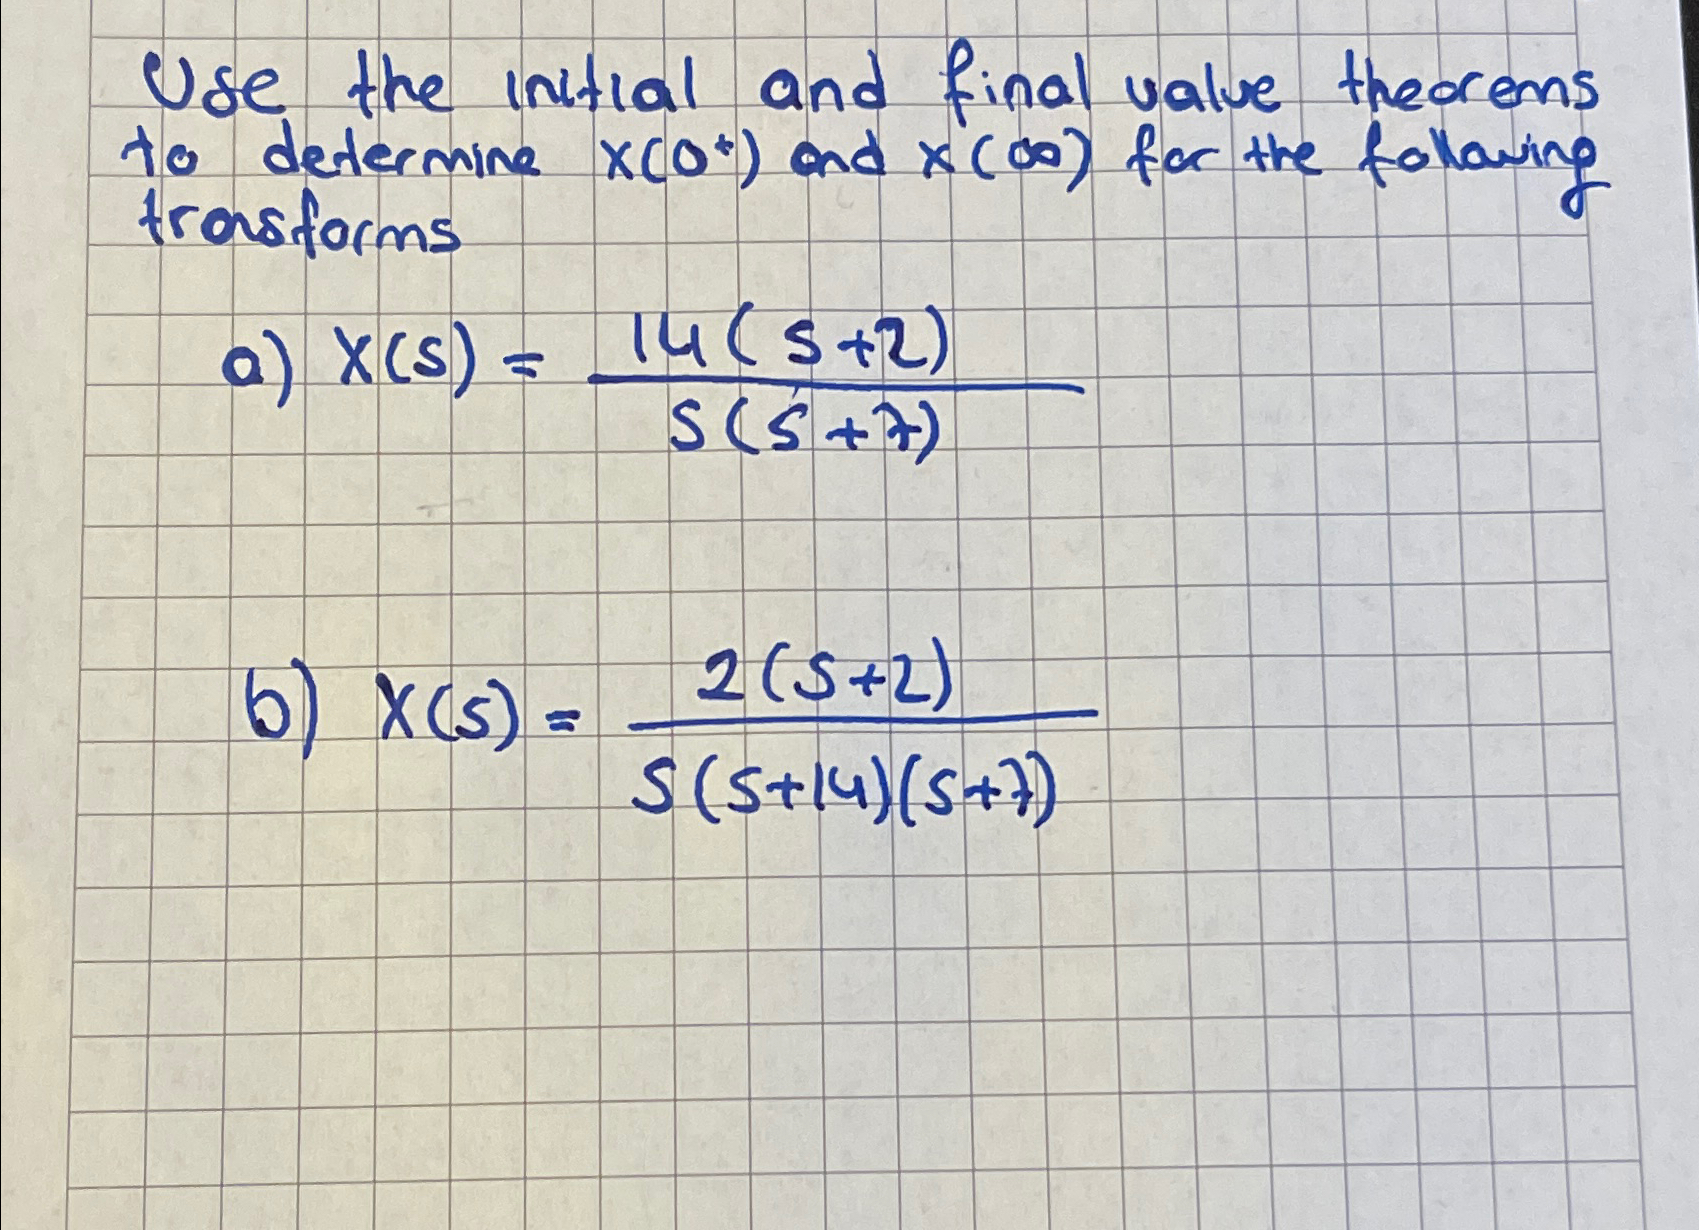 Use the initial and final value theorems
to determine x(0⁺) and x(∞) for the following
transforms
a) X(s) = 14(s+2) / s(s+7)
b) X(s) = 2(s+2) / s(s+14)(s+7)